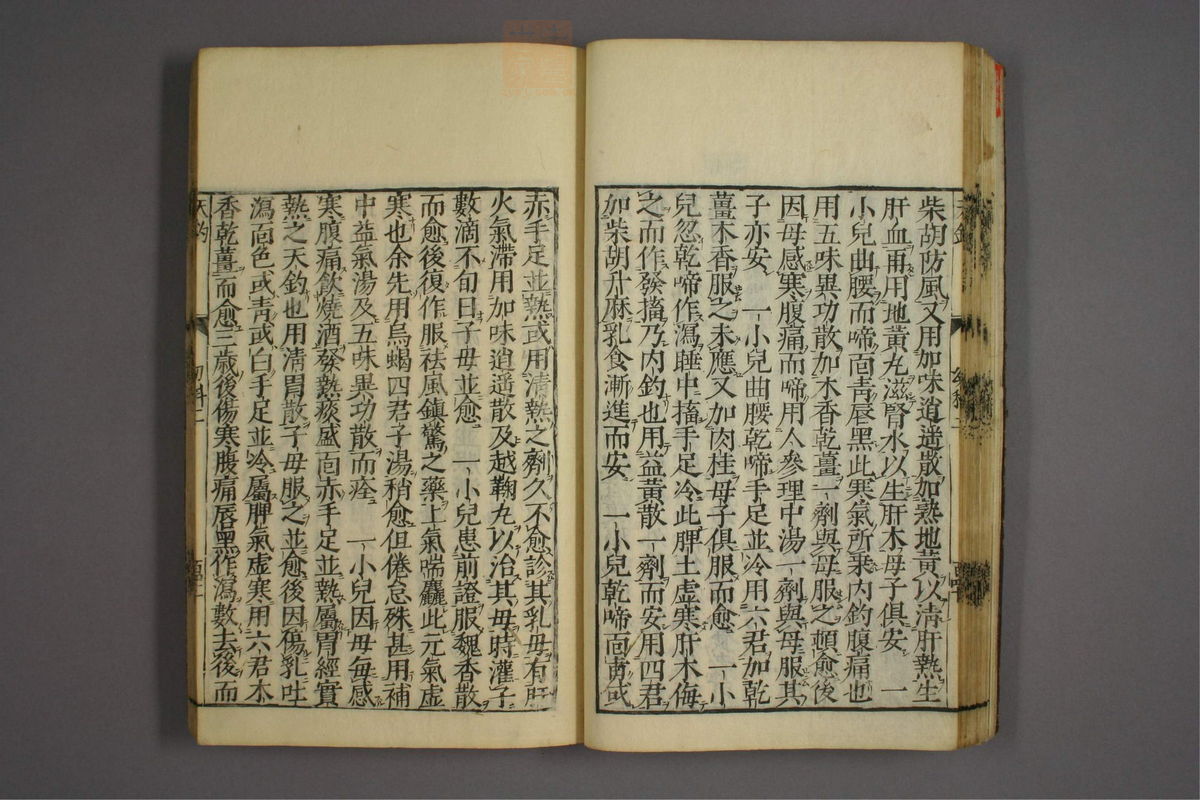 柴胡防風又用加味逍遥散加熟地黃以清肝熱生
肝血再用地黃丸滋腎水以生肝木母子俱安　一
小兒曲腰而啼面青唇黑此寒氣所乘内釣腹痛也
用五味異功散加木香乾薑一劑與母服之頓愈後
因母感寒腹痛而啼用人參理中湯一劑與母服其
子亦安　一小兒曲腰乾啼手足並冷用六君加乾
薑木香服之未應又加肉桂母子俱服而愈　一小
兒忽乾啼作瀉睡中搐手足冷此脾土虚寒肝木侮
之而作發搐乃内釣也用益黃散一劑而安用四君
加柴胡升麻乳食漸進而安　一小兒乾啼面青或
赤手足並熱或用清熱之劑久不愈診其乳母有肝
火氣滯用加味逍遥散及越鞠丸以治其母時灌子
數滴不旬日子母並愈　一小兒患前證服魏香散
而愈後復作服祛風鎮驚之藥上氣喘麤此元氣虚
寒也余先用烏蝎四君子湯稍愈但倦怠殊甚用補
中益氣湯及五味異功散而痊　一小兒因母每感
寒腹痛飲燒酒發熱痰盛面赤手足並熱屬胃經實
熱之天釣也用清胃散子母服之並愈後因傷乳吐
瀉面色或青或白手足並冷屬脾氣虚寒用六君木
香乾薑而愈三歳後傷寒腹痛唇黑作瀉數去後而
天釣
幼科二